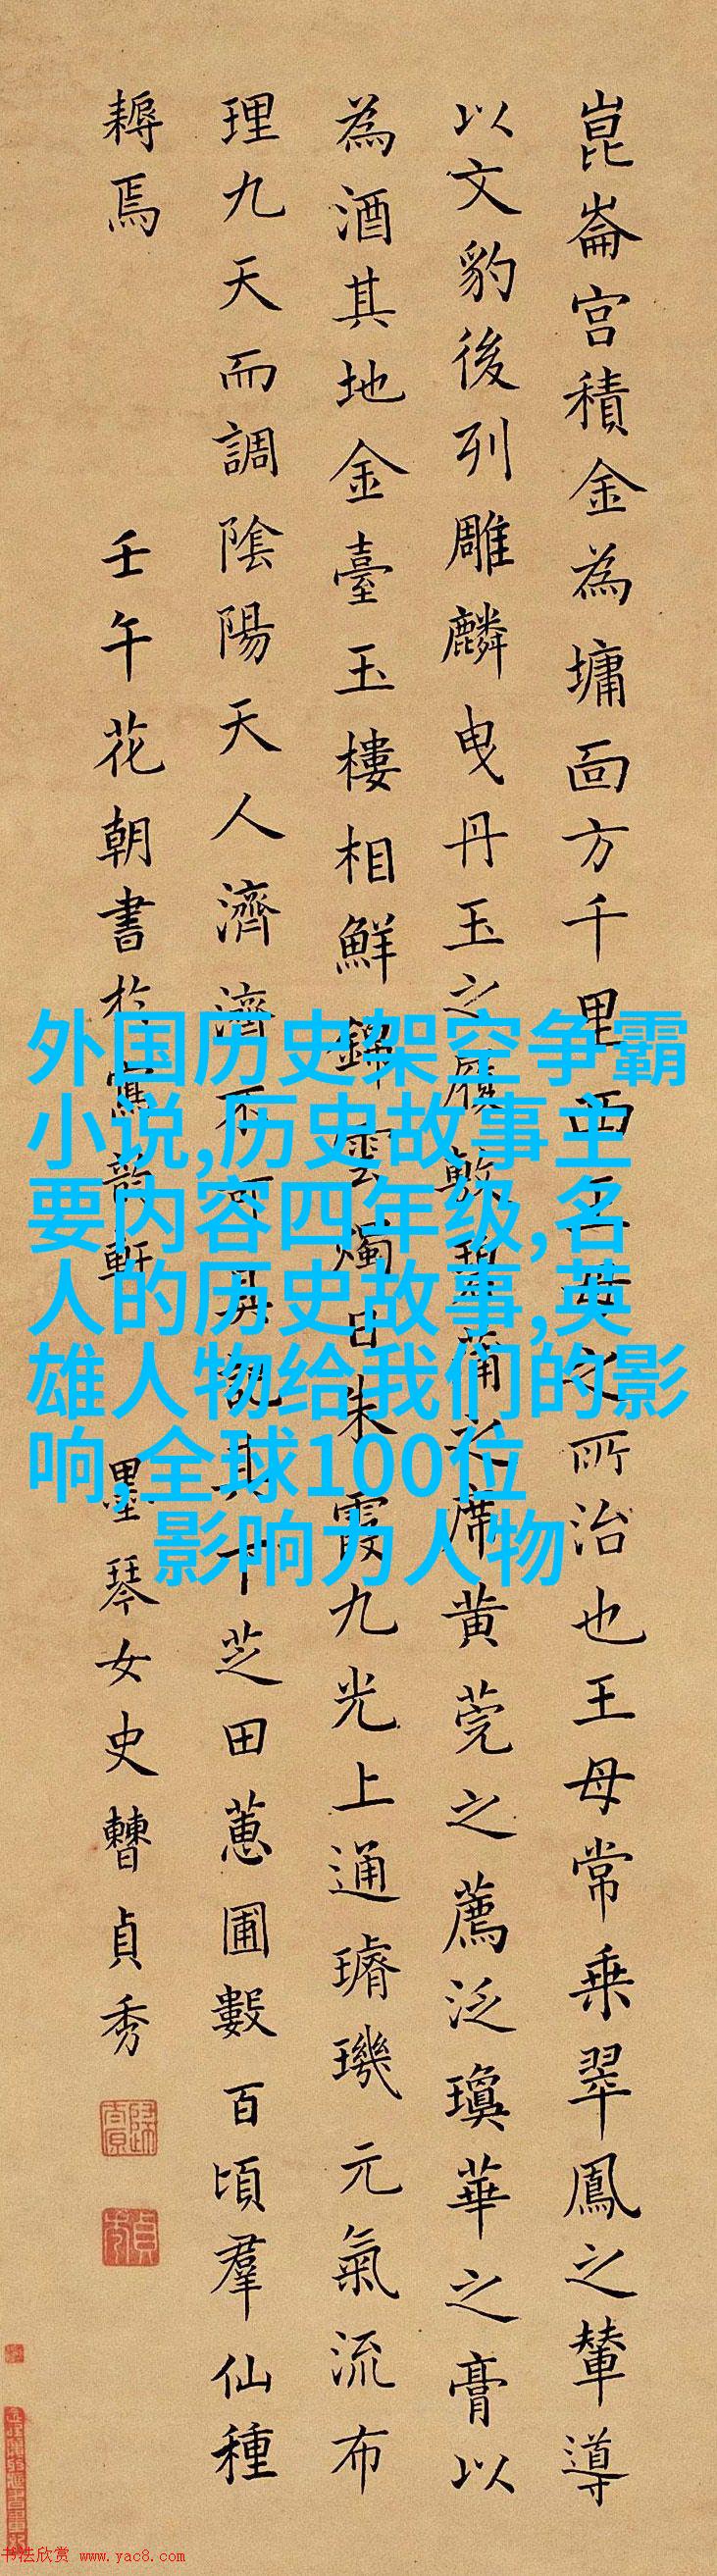 崑崙宮積金為墉面方千里西王母之所治也王母常乘翠鳳之輦導
以文豹後列雕麟曳丹玉之履敷碧蒲之席黄莞之薦泛瓊華之膏以
為酒其地金臺玉樓相鮮錦雲燭日朱霞九光上通璿璣元氣流布
理九天而調陰陽天人濟濟不可具記其下芝田蕙圃數百頃羣仙種
耨焉 壬午花朝書於寫韻軒 墨琴女史曹貞秀
外国历史架空争霸
小说,历史故事主
要内容四年级,名
人的历史故事,英
雄人物给我们的影
响,全球100位
影响力人物
书法欣赏 www.yac8.com